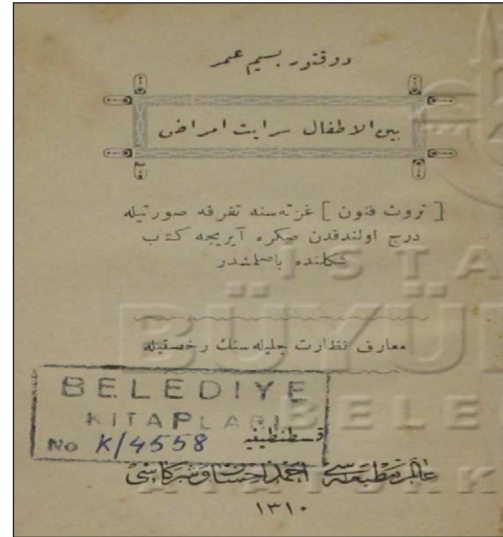 دوقتور بسيم عمر
بين الاطفال سرايت امراض
[ ثروت فنون ] غزته‌سنه تفرقه صورتيله
درج اولندقدن صكره آيريجه كتاب
شكلنده باصلمشدر
معارف نظارت جليله‌سنك رخصتيله
BELEDIYE
KITAPLARI
No K/4558
قسطنطينيه
عالم مطبعه‌سى احمد احسان و شركاسى
١٣١٠
İSTA
BÜYÜK
BELE
ATATÜRK